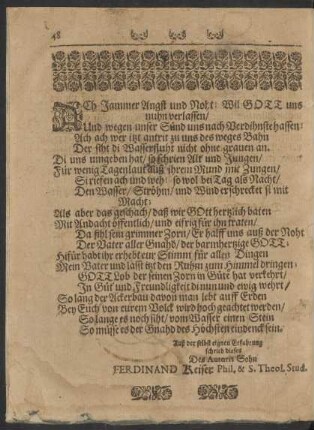 48
ACh Jammer Angst und Noht: Wil GOTT uns
nuhn verlassen/
Und wegen unser Sünd uns nach Verdihnste hassen:
Ach ach wer itzt antrit zu uns des weges Bahn
Der siht di Wasserfluht nicht ohne grauen an.
Di uns umgeben hat/ so schrien Alt und Jungen/
Für wenig Tagen laut auß ihrem Mund mit Zungen/
Si riefen ach und weh/ so wol bei Tag als Nacht/
Den Wasser/ Ströhm/ und Wind erschrecket si mit
Macht:
Als aber das geschach/ daß wir GOtt hertzlich baten
Mit Andacht öffentlich/ und eifrig für ihn traten/
Da fihl sein grimmer Zorn/ Er halff uns auß der Noht
Der Vater aller Gnahd/ der barmhertzige GOTT:
Hifür habt ihr erhebt eur Stimm für allen Dingen
Mein Vater und lässt itzt den Ruhm zum Himmel dringen:
GOTT Lob der seinen Zorn in Güt hat verkehrt/
In Güt und Freundligkeit di nun und ewig wehrt/
So lang der Ackerbau davon man lebt auff Erden
Bey Euch von eurem Volck wird hoch geachtet werden/
So lange es noch siht/ vom Wasser einen Stein
So müsse es der Gnahd des Höchsten eindenck sein.
Auß der selbst eignen Erfahrung
schrieb dieses
Des Autoris Sohn
FERDINAND Reiser Phil. & S. Theol. Stud.